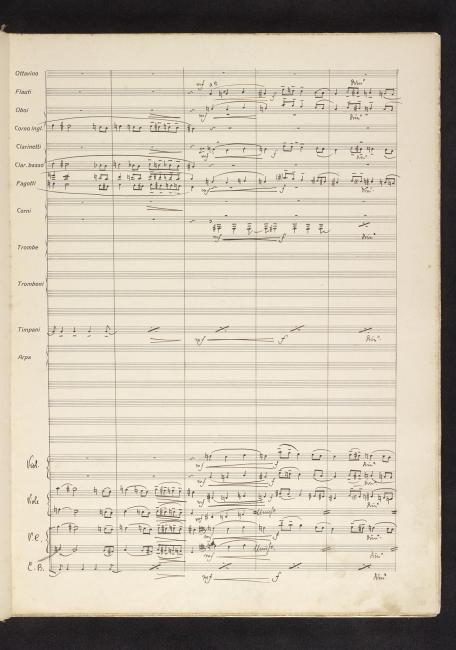 Ottavino
mf a 2 Dim°
Flauti
Oboi
mf f Dim°
Corno ingl.
Clarinetti
mf f Dim°
Clar. basso
Fagotti
mf f Dim°
Corni
mf f Dim°
Trombe
Tromboni
Timpani
mf f Dim°
Arpa
Viol.
mf f Dim°
mf f Dim°
Viole
mf f Dim°
mf Unis.
V.C.
f Dim°
mf Unis. Dim°
C.B.
mf f Dim°